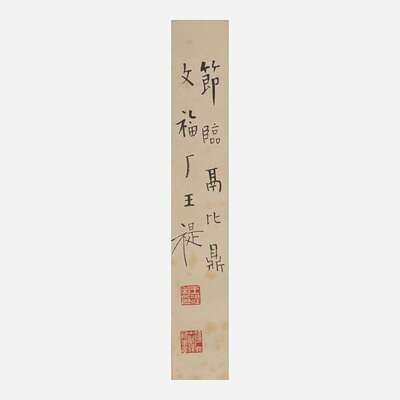 節臨鬲比鼎
文福厂王禔